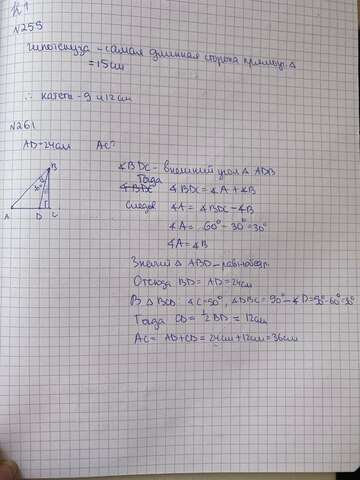 №255
Гипотенуза - самая длинная сторона прямоуг. Δ
= 15см
∴ катеты - 9 и 12см
№261
AD=24см AC-?
B
30°
A D C
∢BDC - внешний угол Δ ADB
Тогда
∢BDC = ∢A + ∢B
Следов ∢A = ∢BDC - ∢B
∢A = 60° - 30° = 30°
∢A = ∢B
Значит Δ ABD - равнобедр.
Отсюда BD = AD = 24см
В Δ BCD ∢C=90°, ∢DBC = 90° - ∢D = 90° - 60° = 30°
Тогда CD = ½ BD = 12см
AC = AD + CD = 24см + 12см = 36см